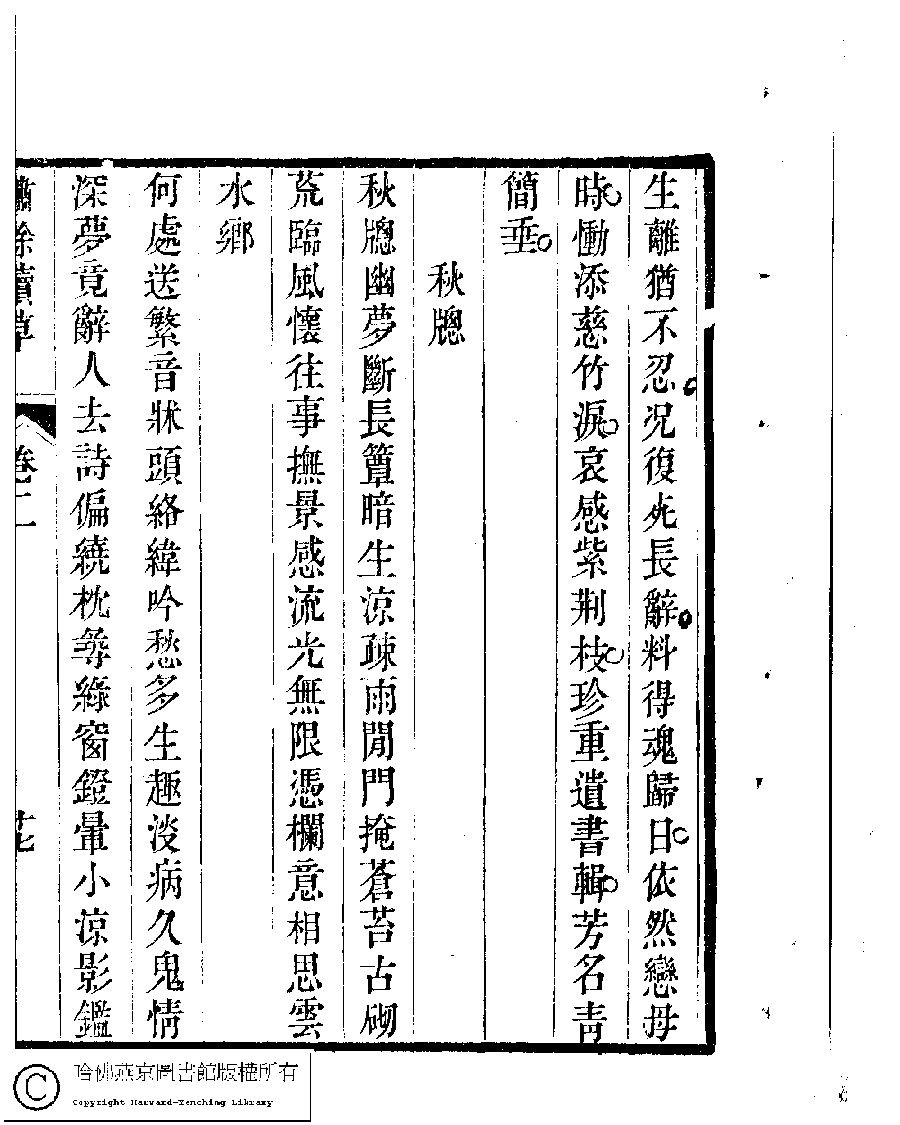 生離猶不忍况復死長辭料得魂歸日依然戀母
時慟添慈竹淚哀感紫荆枝珍重遺書輯芳名青
簡垂
秋牕
秋牕幽夢斷長簟暗生涼疎雨閒門掩蒼苔古砌
荒臨風懷往事撫景感流光無限憑欄意相思雲
水鄉
何處送繁音牀頭絡緯吟愁多生趣淡病久鬼情
深夢竟辭人去詩偏繞枕尋綠窗鐙暈小涼影鑑
餘續草 卷二 廿七
哈佛燕京圖書館版權所有
Copyright Harvard-Yenching Library